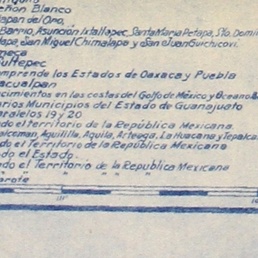 chón Blanco
apan del Oro,
Barrio, Asunción Ixtaltepec, Santa María Petapa, Sto. Domin
tapa, San Miguel Chimalapa y San Juan Guichicovi.
neca
ultepec
mprende los Estados de Oaxaca y Puebla
acualpan
ecimientos en las costas del Golfo de México y Oceano
arios Municipios del Estado de Guanajuato
aralelos 19 y 20
do el territorio de la República Mexicana.
alcoman, Aguililla, Aquila, Arteaga, La Huacana y Tepalca
do el Territorio de la República Mexicana
do el Estado.
do el Territorio de la Republica Mexicana
" " " "
erote